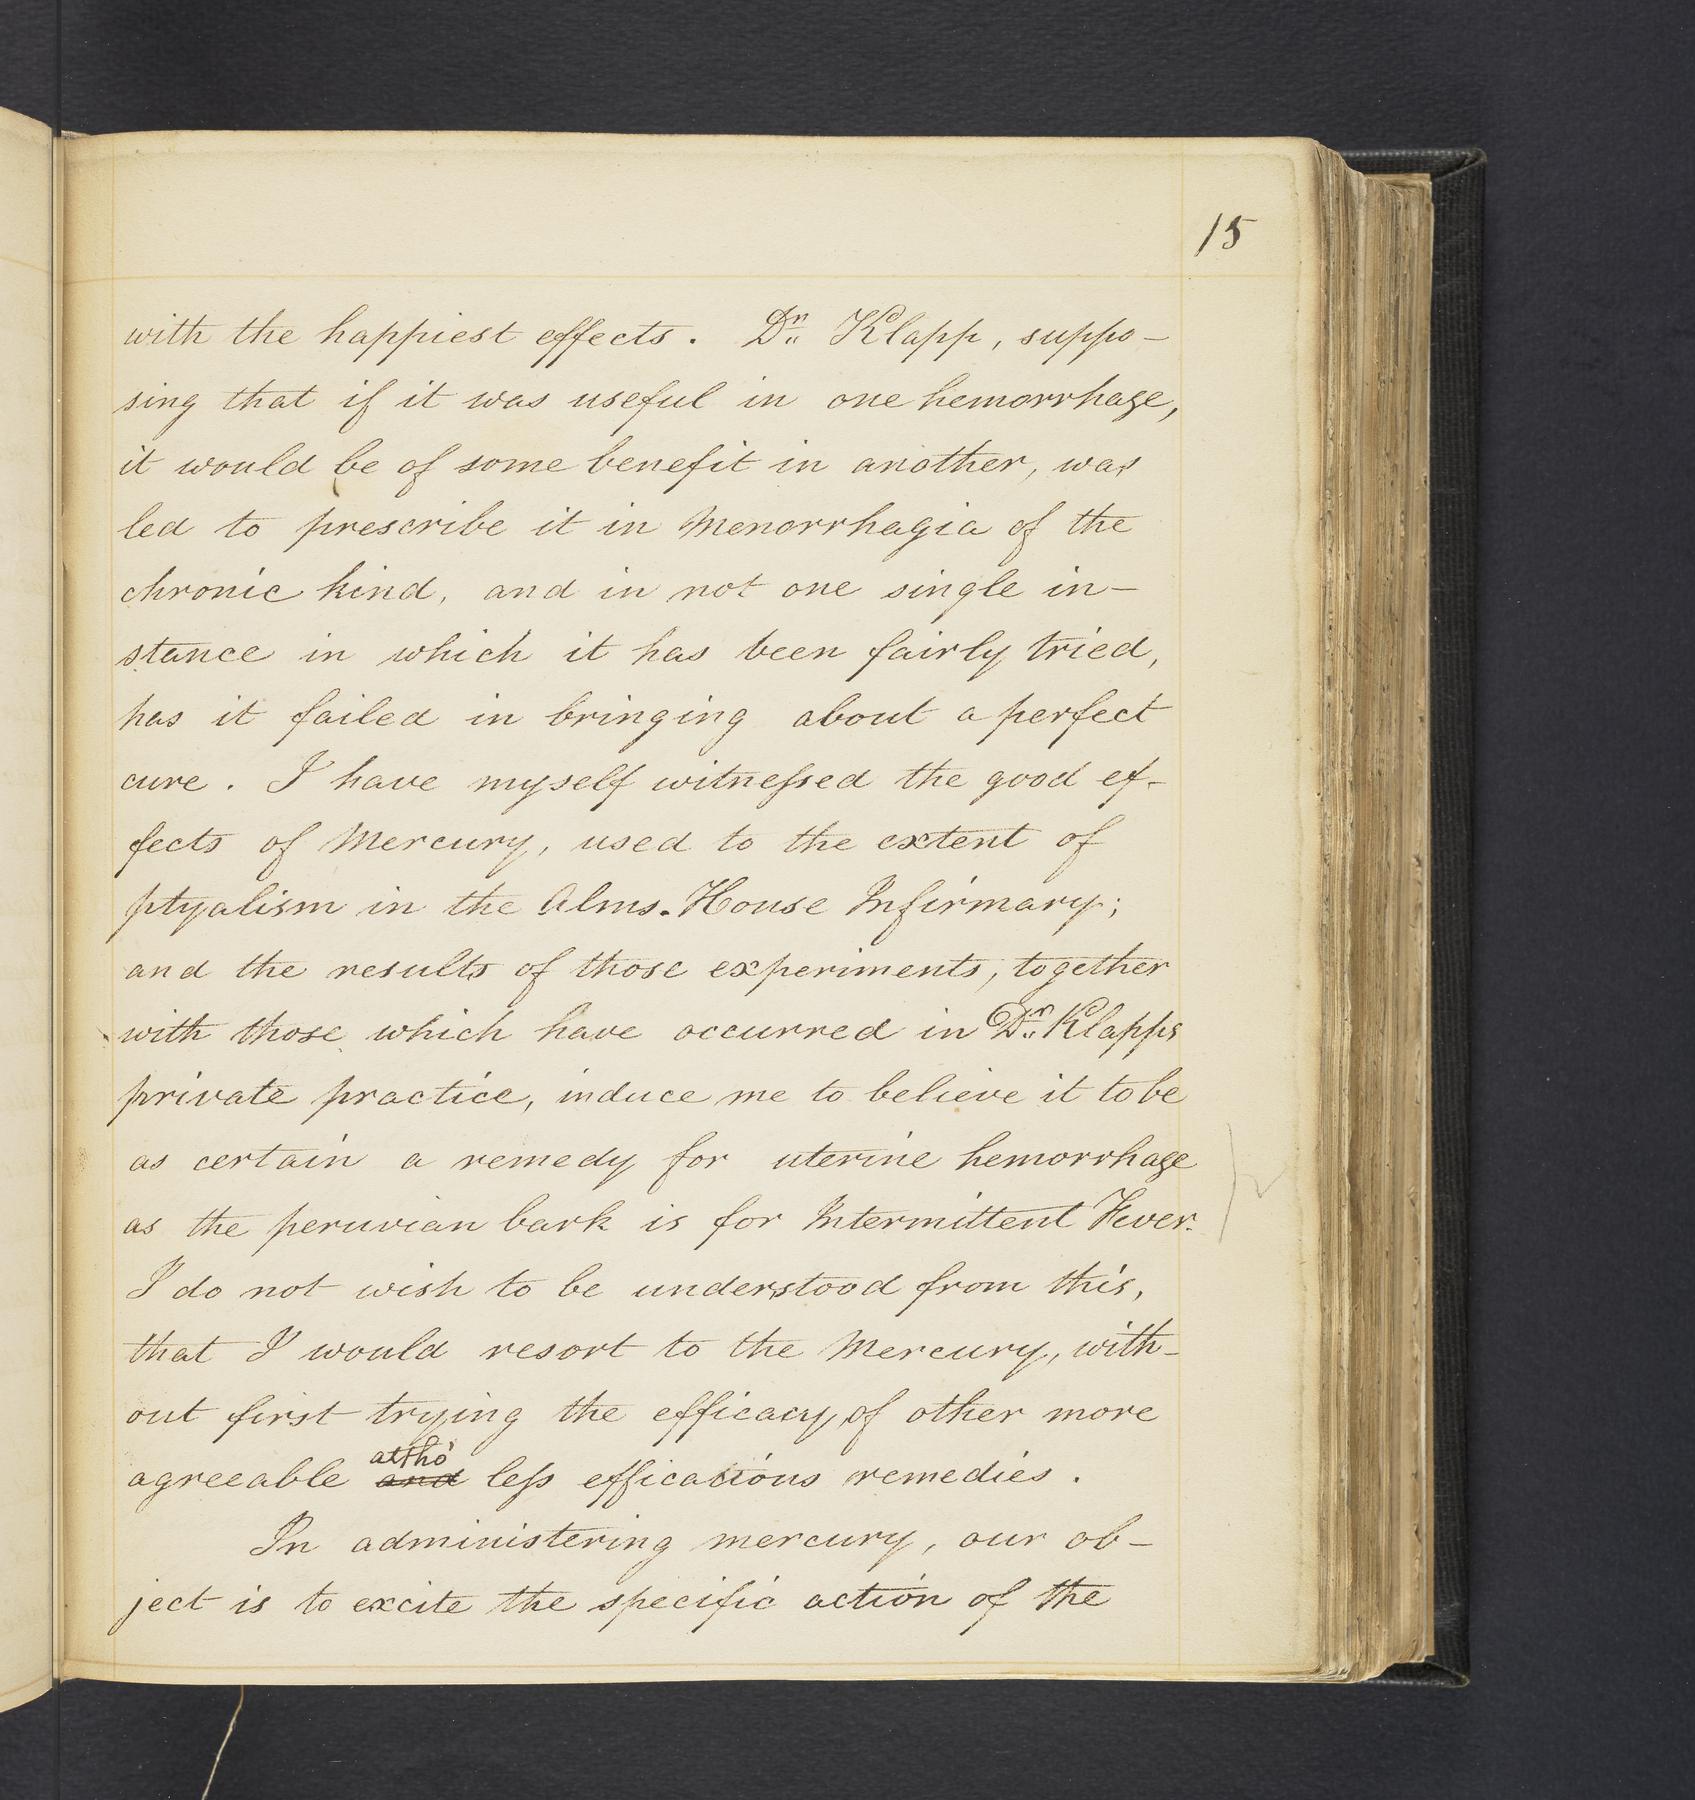 15
with the happiest effects. Dr. Klapp, suppo-
sing that if it was useful in one hemorrhage,
it would be of some benefit in another, was
led to prescribe it in Menorrhagia of the
chronic kind, and in not one single in-
stance in which it has been fairly tried,
has it failed in bringing about a perfect
cure. I have myself witnessed the good ef-
fects of Mercury, used to the extent of
ptyalism in the Alms-House Infirmary;
and the results of those experiments, together
with those which have occurred in Dr. Klapps
private practice, induce me to believe it to be
as certain a remedy for uterine hemorrhage
as the peruvian bark is for Intermittent Fever.
I do not wish to be understood from this,
that I would resort to the Mercury, with-
out first trying the efficacy, of other more
altho'
agreeable and less efficacious remedies.
In administering mercury, our ob-
ject is to excite the specific action of the